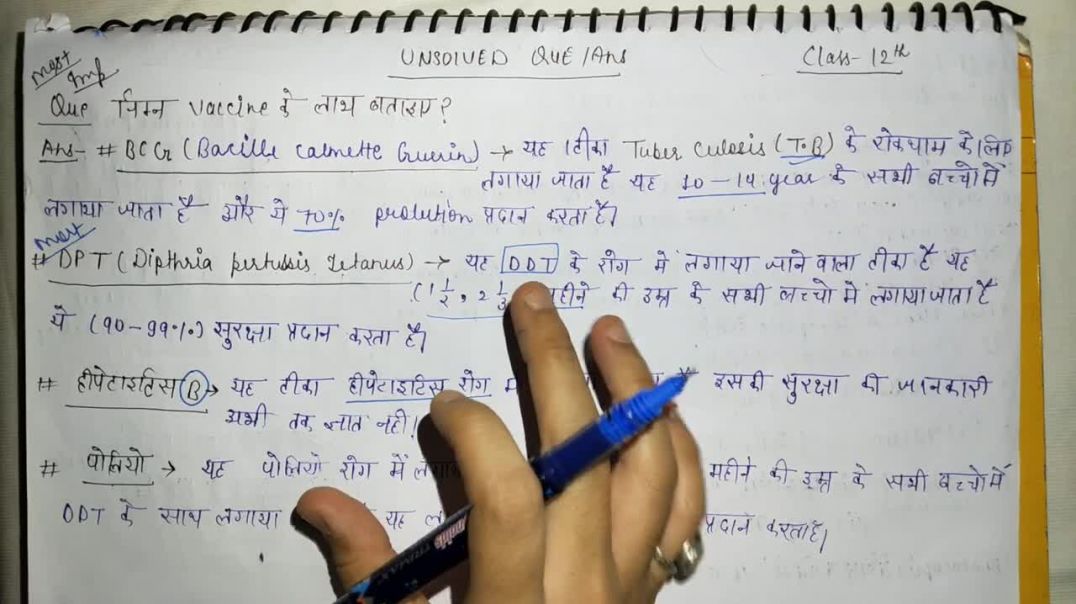 UNSOLVED QUE/Ans
Class-12th
most Imp
Que निम्न vaccine के लाभ बताइए?
Ans- # BCG (Bacille calmette Guerin) → यह टीका Tuber Culosis (T.B) के रोकथाम के लिए
लगाया जाता है यह 10-14 year के सभी बच्चो में
लगाया जाता है और ये 70% protution प्रदान करता है।
most
# DPT (Diptheria pertussis Tetanus) → यह DDT के रोग में लगाया जाने वाला टीका है यह
(1 1/2, 2 1/ हीने की उम्र के सभी बच्चो में लगाया जाता है
ये (90-99%) सुरक्षा प्रदान करता है।
# हीपेटाइटिस B → यह टीका हीपेटाइटिस रोग में इसकी सुरक्षा की जानकारी
अभी तक ज्ञात नही।
# पोलियो → यह पोलियो रोग में महीने की उम्र के सभी बच्चो में
DDT के साथ लगाया यह प्रदान करता है।